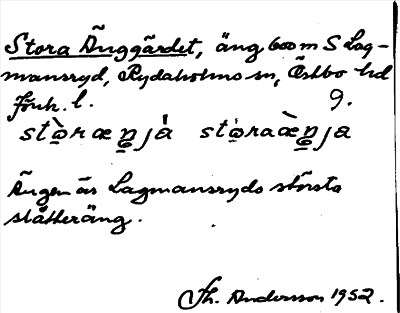 Stora Änggärdet, äng 600 m S Lag-
mansryd, Rydaholms sn, Östbo hd
Jönk. l. 9.
Ängen är Lagmansryds största
slåtteräng.
Th. Andersson 1952.